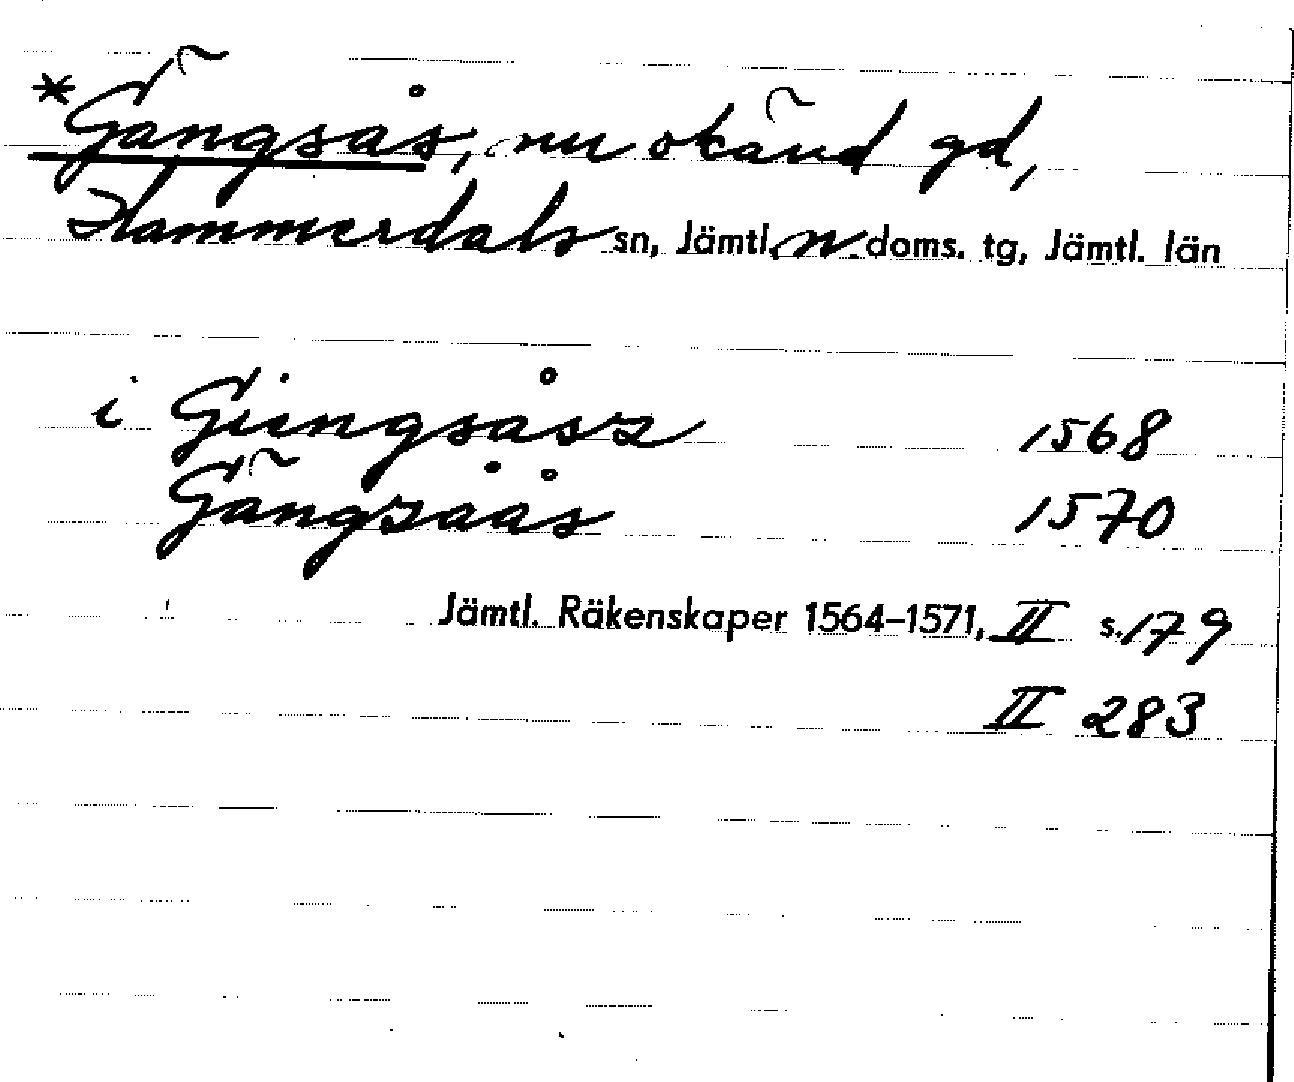 *Gängsås, nu okänd gd,
Hammerdals sn, Jämtl. n. doms. tg, Jämtl. län
i Giengsåsz 1568
Gängzåås 1570
Jämtl. Räkenskaper 1564-1571, II s. 179
II 283